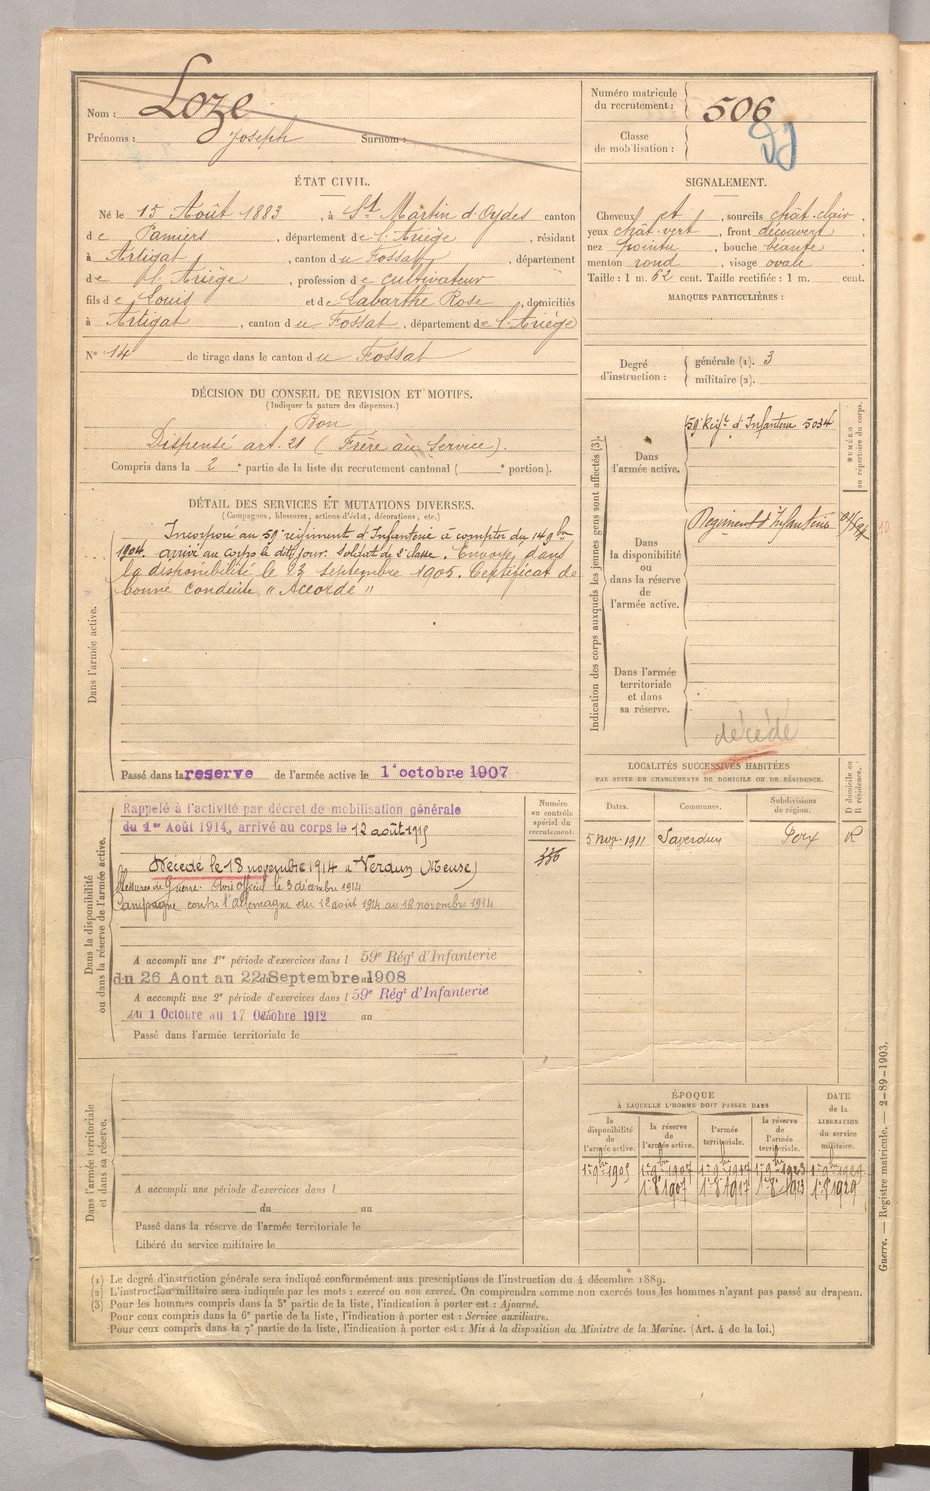 Nom : Loze
Prénoms : Joseph Surnom :
Numéro matricule du recrutement : 506
Classe de mobilisation :
ÉTAT CIVIL.
Né le 15 Août 1883, à St Martin d'Oydes canton
de Pamiers, département de l'Ariège, résidant
à Artigat, canton du Fossat, département
de l'Ariège, profession de cultivateur
fils de Louis et de Labarthe Rose, domiciliés
à Artigat, canton du Fossat, département de l'Ariège
N° 14 de tirage dans le canton du Fossat
SIGNALEMENT.
Cheveux et, sourcils chât-clair,
yeux chât-vert, front découvert,
nez pointu, bouche béante,
menton rond, visage ovale.
Taille : 1 m. 62 cent. Taille rectifiée : 1 m. cent.
MARQUES PARTICULIÈRES :
Degré d'instruction : générale (1). 3
militaire (2).
DÉCISION DU CONSEIL DE REVISION ET MOTIFS.
(Indiquer la nature des dispenses.)
Bon
Dispensé art. 21 (Frère au Service)
Compris dans la 2e partie de la liste du recrutement cantonal ( e portion).
DÉTAIL DES SERVICES ET MUTATIONS DIVERSES.
(Campagnes, blessures, actions d'éclat, décorations, etc.)
Dans l'armée active.
Incorporé au 59e régiment d'Infanterie à compter du 14 9bre
1904. arrivé au corps le dit jour. Soldat de 2e classe. Envoyé dans
la disponibilité le 23 septembre 1905. Certificat de
bonne conduite, " Accordé "
Passé dans la reserve de l'armée active le 1er octobre 1907
Indication des corps auxquels les jeunes gens sont affectés (3).
NUMÉRO au répertoire du corps.
Dans l'armée active.
59e Régt d'Infanterie 5034
Dans la disponibilité ou dans la réserve de l'armée active.
Régiment d'Infanterie
Dans l'armée territoriale et dans sa réserve.
décédé
Dans la disponibilité ou dans la réserve de l'armée active.
Rappelé à l'activité par décret de mobilisation générale
du 1er Août 1914, arrivé au corps le 12 août
Décédé le 18 novembre 1914 à Verdun (Meuse)
Blessures de Guerre. Avis officiel le 3 décembre 1914
Campagne contre l'Allemagne du 12 août 1914 au 18 novembre 1914
Numéro au contrôle spécial du recrutement.
A accompli une 1re période d'exercices dans l 59e Régt d'Infanterie
du 26 Aout au 22 Septembre 1908
A accompli une 2e période d'exercices dans l 59e Régt d'Infanterie
du 1 Octobre au 17 Octobre 1912 au
Passé dans l'armée territoriale le
LOCALITÉS SUCCESSIVES HABITÉES
PAR SUITE DE CHANGEMENTS DE DOMICILE OU DE RÉSIDENCE.
D domicile ou R résidence.
Dates. Communes. Subdivisions de région.
5 nov. 1911 Saverdun Foix R
Dans l'armée territoriale et dans sa réserve.
A accompli une période d'exercices dans l
du au
Passé dans la réserve de l'armée territoriale le
Libéré du service militaire le
ÉPOQUE
À LAQUELLE L'HOMME DOIT PASSER DANS
DATE de la LIBÉRATION du service militaire.
la disponibilité de l'armée active. la réserve de l'armée active. l'armée territoriale. la réserve de l'armée territoriale.
1er 9bre 1905 1er 9bre 1907 1er 9bre 1917 1er 9bre 1923 1er 9bre 1929
1er 8bre 1907 1er 8bre 1917 1er 8bre 1923 1er 8bre 1929
(1) Le degré d'instruction générale sera indiqué conformément aux prescriptions de l'instruction du 4 décembre 1889.
(2) L'instruction militaire sera indiquée par les mots : exercé ou non exercé. On comprendra comme non exercés tous les hommes n'ayant pas passé au drapeau.
(3) Pour les hommes compris dans la 5e partie de la liste, l'indication à porter est : Ajourné.
Pour ceux compris dans la 6e partie de la liste, l'indication à porter est : Service auxiliaire.
Pour ceux compris dans la 7e partie de la liste, l'indication à porter est : Mis à la disposition du Ministre de la Marine. (Art. 4 de la loi.)
Guerre. — Registre matricule. — 2-89-1903.